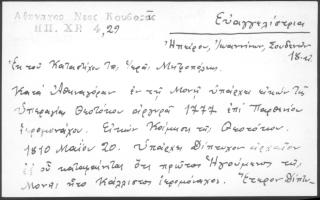 Αθηναγορας Νεος Κουβαρᾶς
ΗΠ. ΧΡ 4, 29
Εὐαγγελίστρια
Ἠπείρου, Ἰωαννίνων, Σουδενῶν
Ἐκ τοῦ Καταστίχου τῆς Ἱερᾶς Μητροπόλεως.
Κατὰ Ἀθηναγόραν ἐν τῇ Μονῇ ὑπάρχει εἰκὼν τῆς
Ὑπεραγίας Θεοτόκου ἀργυρᾶ 1777 ἐπὶ Παρθενίου
ἱερομονάχου. Εἰκὼν Κοίμησις τῆς Θεοτόκου.
1810 Μαΐου 20. Ὑπάρχει Δίπτυχον ἀρχαῖον
ἐξ οὗ καταφαίνεται ὅτι πρῶτος Ἡγούμενος τῆς
Μονῆς ἦτο Κάλλιστος ἱερομόναχος. Ἕτερον Δίπτυ-